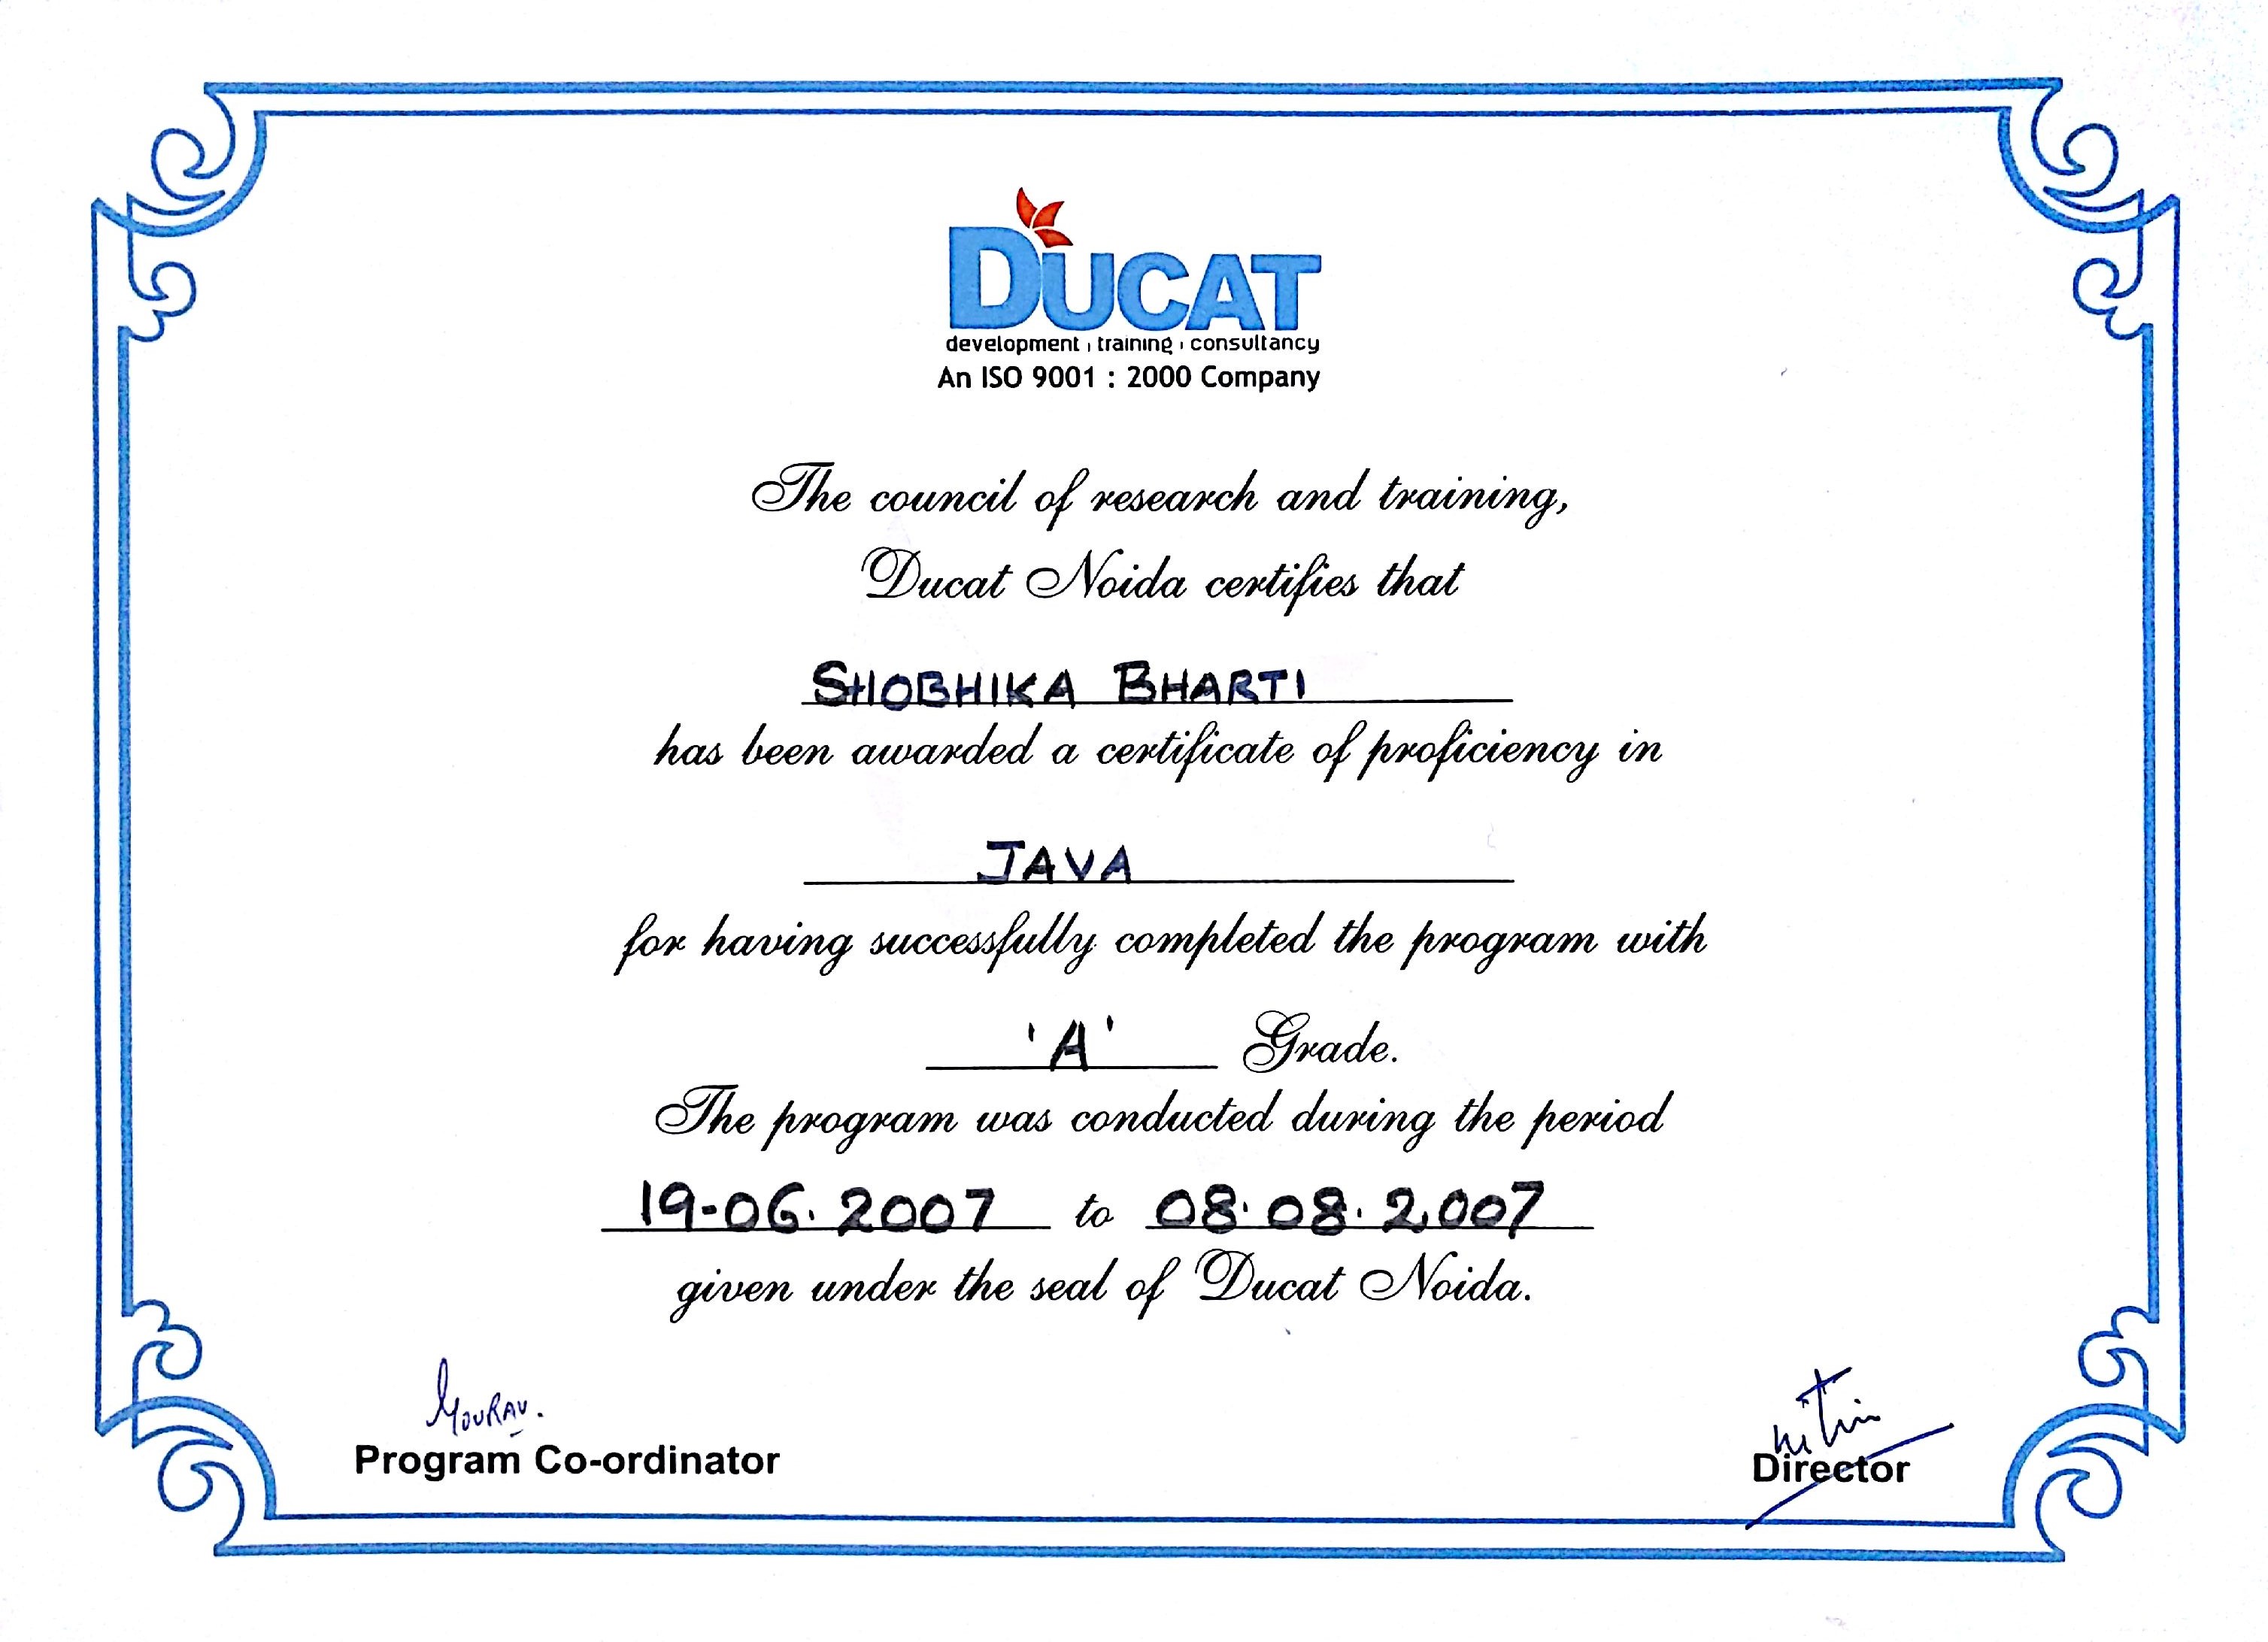 DUCAT
development | training | consultancy
An ISO 9001 : 2000 Company
The council of research and training,
Ducat Noida certifies that
SHOBHIKA BHARTI
has been awarded a certificate of proficiency in
JAVA
for having successfully completed the program with
'A' Grade.
The program was conducted during the period
19-06.2007 to 08.08.2007
given under the seal of Ducat Noida.
Nitin
Program Co-ordinator
Director